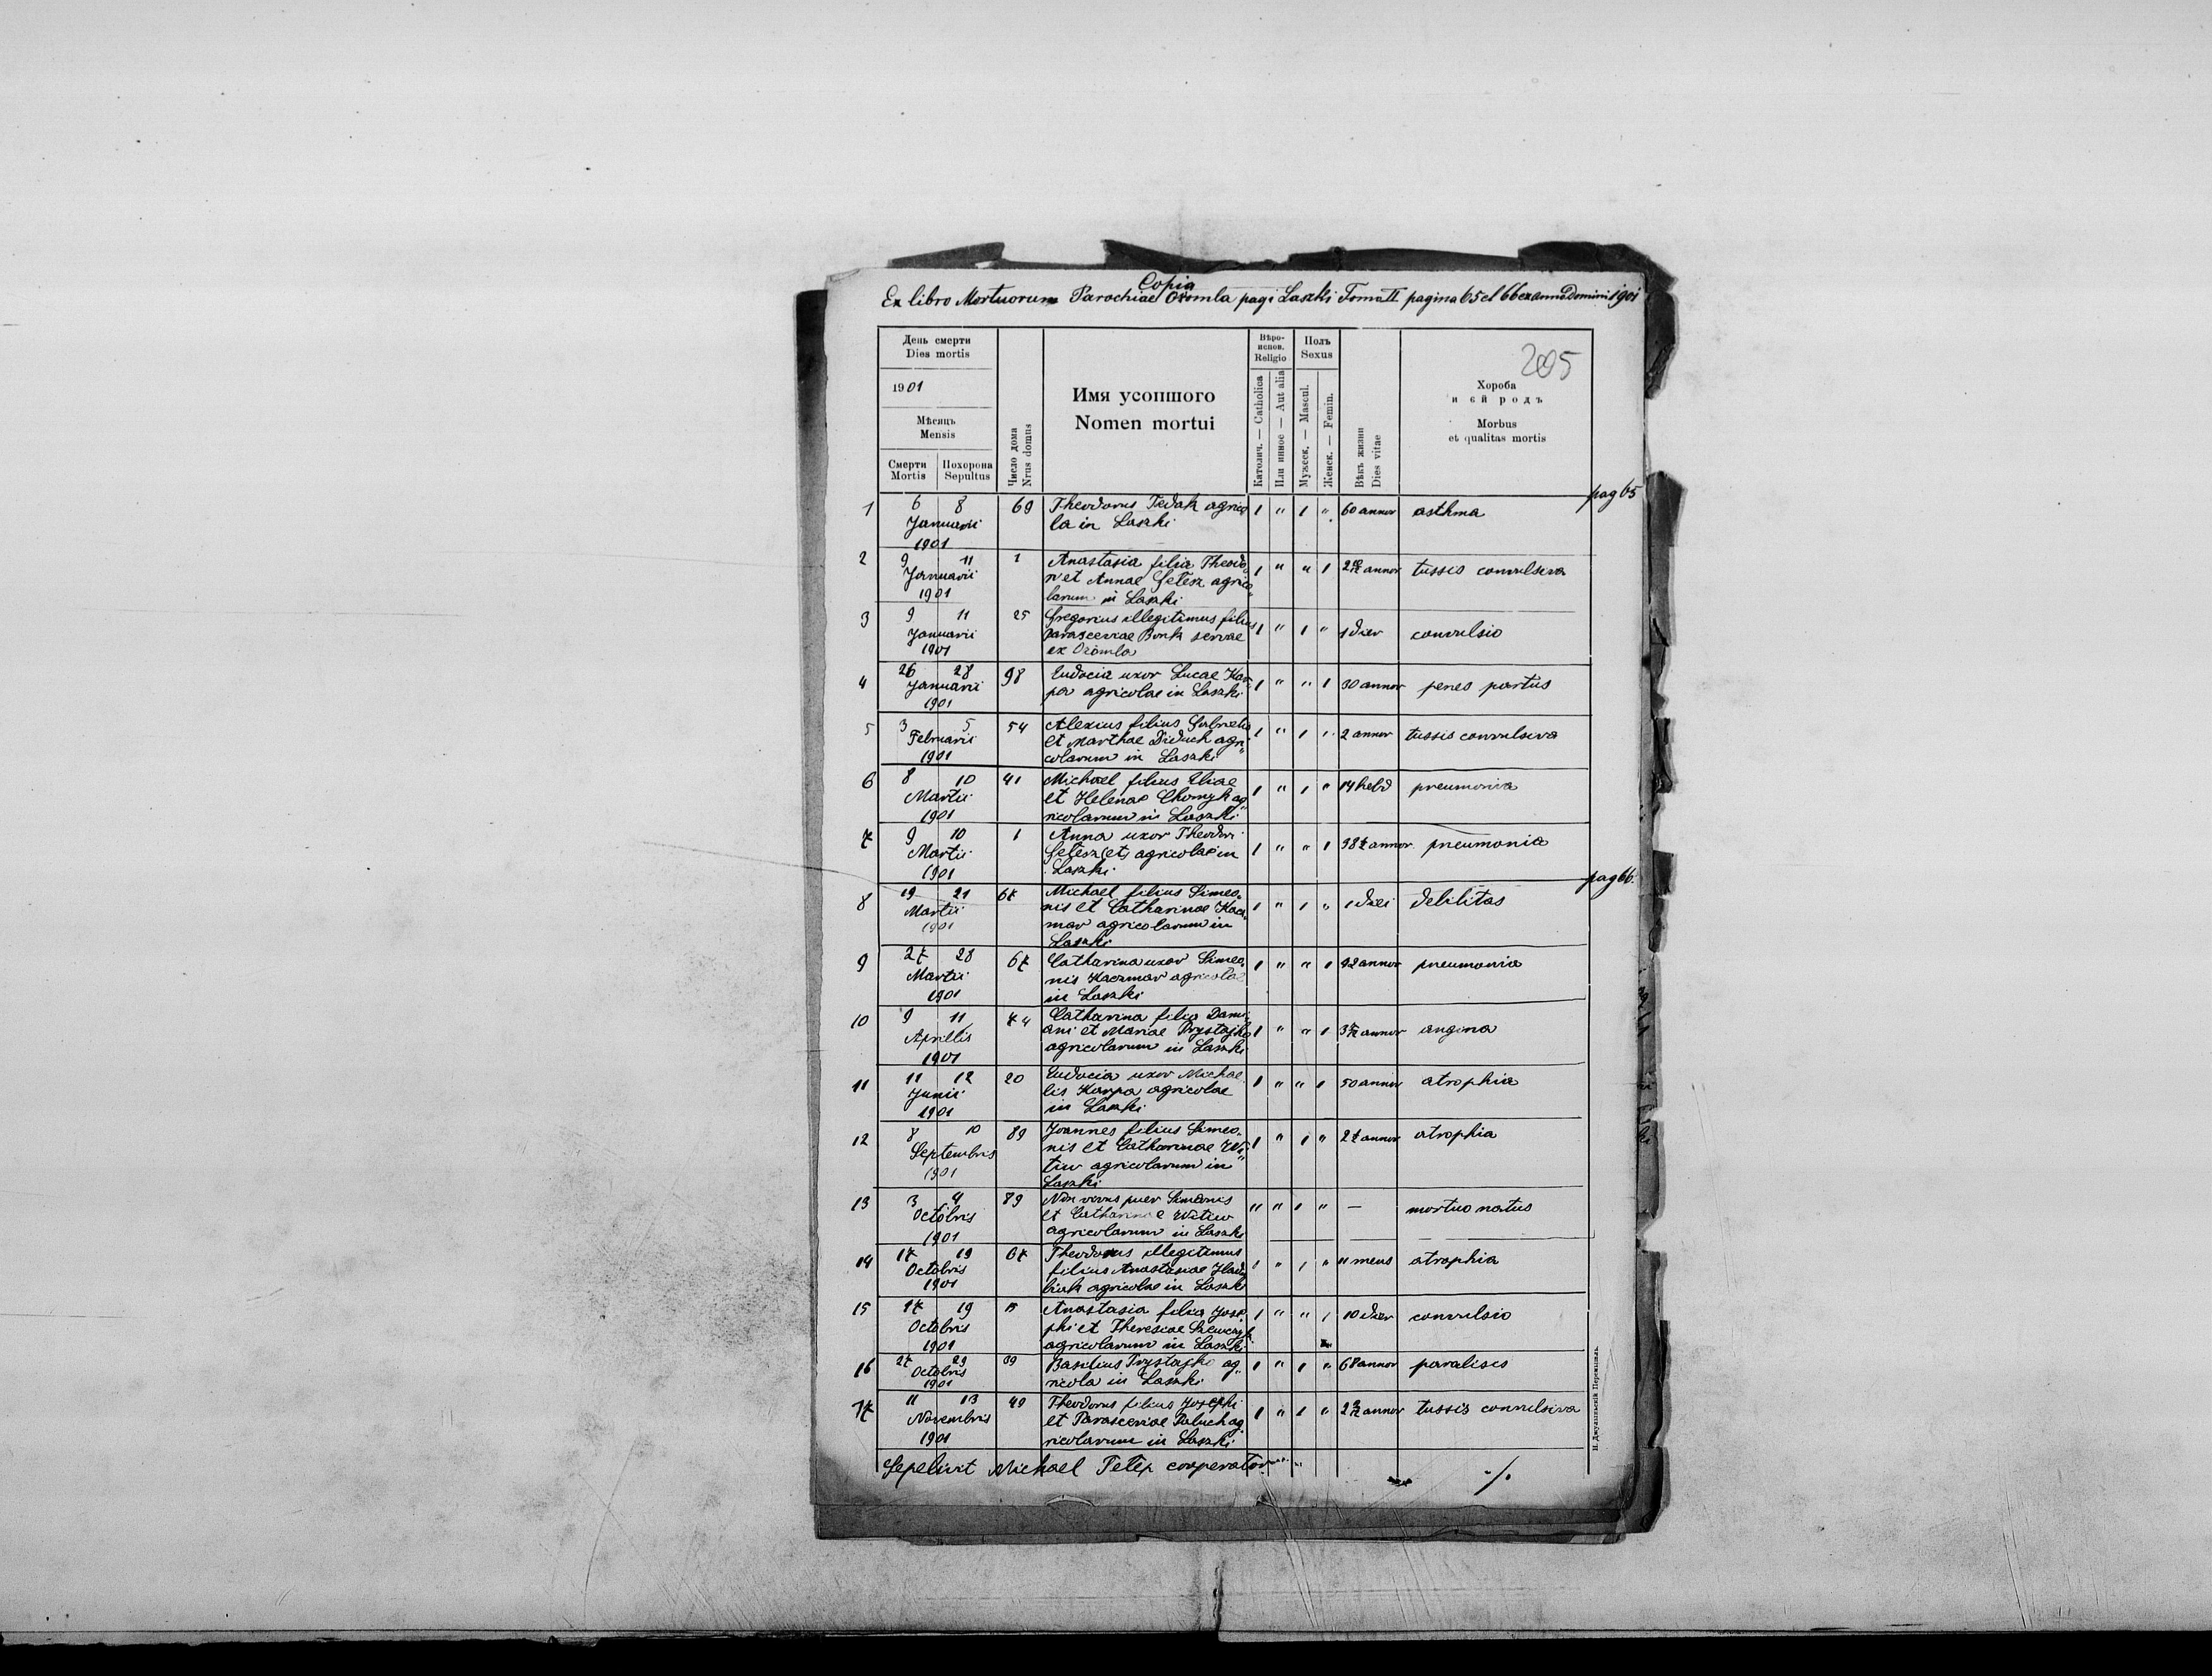 Copia
Ex libro Mortuorum Parochiae Ożomla pagi Laszki Tomo II pagina 65 et 66 ex anno Domini 1901
205
День смерти
Dies mortis
1901
Мѣсяць
Mensis
Смерти
Mortis
Похорона
Sepultus
Число дома
Nrus domus
Имя усопшого
Nomen mortui
Вѣро-
испов.
Religio
Католич. — Catholica
Или инное — Aut alia
Полъ
Sexus
Мужеск. — Mascul.
Женск. — Femin.
Вѣкъ жизни
Dies vitae
Хороба
и єй родъ
Morbus
et qualitas mortis
pag 65
1 6 8 69 Theodorus Fedak agrico 1 " 1 " 60 annor asthma
Januarii la in Laszki
1901
2 9 11 1 Anastasia filia Theodo 1 " " 1 annor tussis convulsiva
Januarii ri et Annae agrico
1901 larum in Laszki
3 9 11 25 Gregorius illegitimus filius 1 " 1 " 1 dier convulsio
Januarii Parasceviae Bonk servae
1901 ex Ożomla
4 26 28 98 Eudocia uxor Lucae Kar 1 " " 1 30 annor penes partus
Januarii pa agricolae in Laszki
1901
5 3 5 54 Alexius filius Gabrielis 1 " 1 " 2 annor tussis convulsiva
Februarii et Marthae Diduch agri
1901 colarum in Laszki
6 8 10 41 Michael filius Eliae 1 " 1 " 14 hebd pneumonia
Martii et Helenae Chomyk ag
1901 ricolarum in Laszki
7 9 10 1 Anna uxor Theodori 1 " " 1 annor. pneumonia
Martii agricolae in
1901 Laszki
pag 66.
8 19 21 67 Michael filius Simeo 1 " 1 " 1 diei debilitas
Martii nis et Catharinae Kacz
1901 mar agricolarum in
Laszki
9 27 28 67 Catharina uxor Simeo 1 " " 1 42 annor pneumonia
Martii nis Kaczmar agricolae
1901 in Laszki
10 9 11 74 Catharina filia Dami 1 " " 1 annor angina
Aprillis ani et Mariae Prystajko
1901 agricolarum in Laszki
11 11 12 20 Eudocia uxor Michae 1 " " 1 50 annor atrophia
Junii lis Karpa agricolae
1901 in Laszki
12 8 10 89 Joannes filius Simeo 1 " 1 " annor atrophia
Septembris nis et Catharinae Wi
1901 tiw agricolarum in
Laszki
13 3 4 89 Non vivus puer Simeonis " " 1 " — mortuo natus
Octobris et Catharinae Witiw
1901 agricolarum in Laszki
14 17 19 67 Theodorus illegitimus 1 " 1 " 11 mens atrophia
Octobris filius Anastasiae
1901 agricolae in Laszki
15 17 19 Anastasia filia Jose 1 " " 1 10 dier convulsio
Octobris phi et Theresiae Szewczyk
1901 agricolarum in Laszki
16 27 29 39 Basilius Prystajko ag 1 " 1 " 68 annor paralisis
Octobris ricola in Laszki
1901
17 11 13 49 Theodorus filius Josephi 1 " 1 " annor tussis convulsiva
Novembris et Parasceviae Paluch ag
1901 ricolarum in Laszki
Sepelivit Michael cooperator ·/.
Н. Джулыньскій Перемышль.